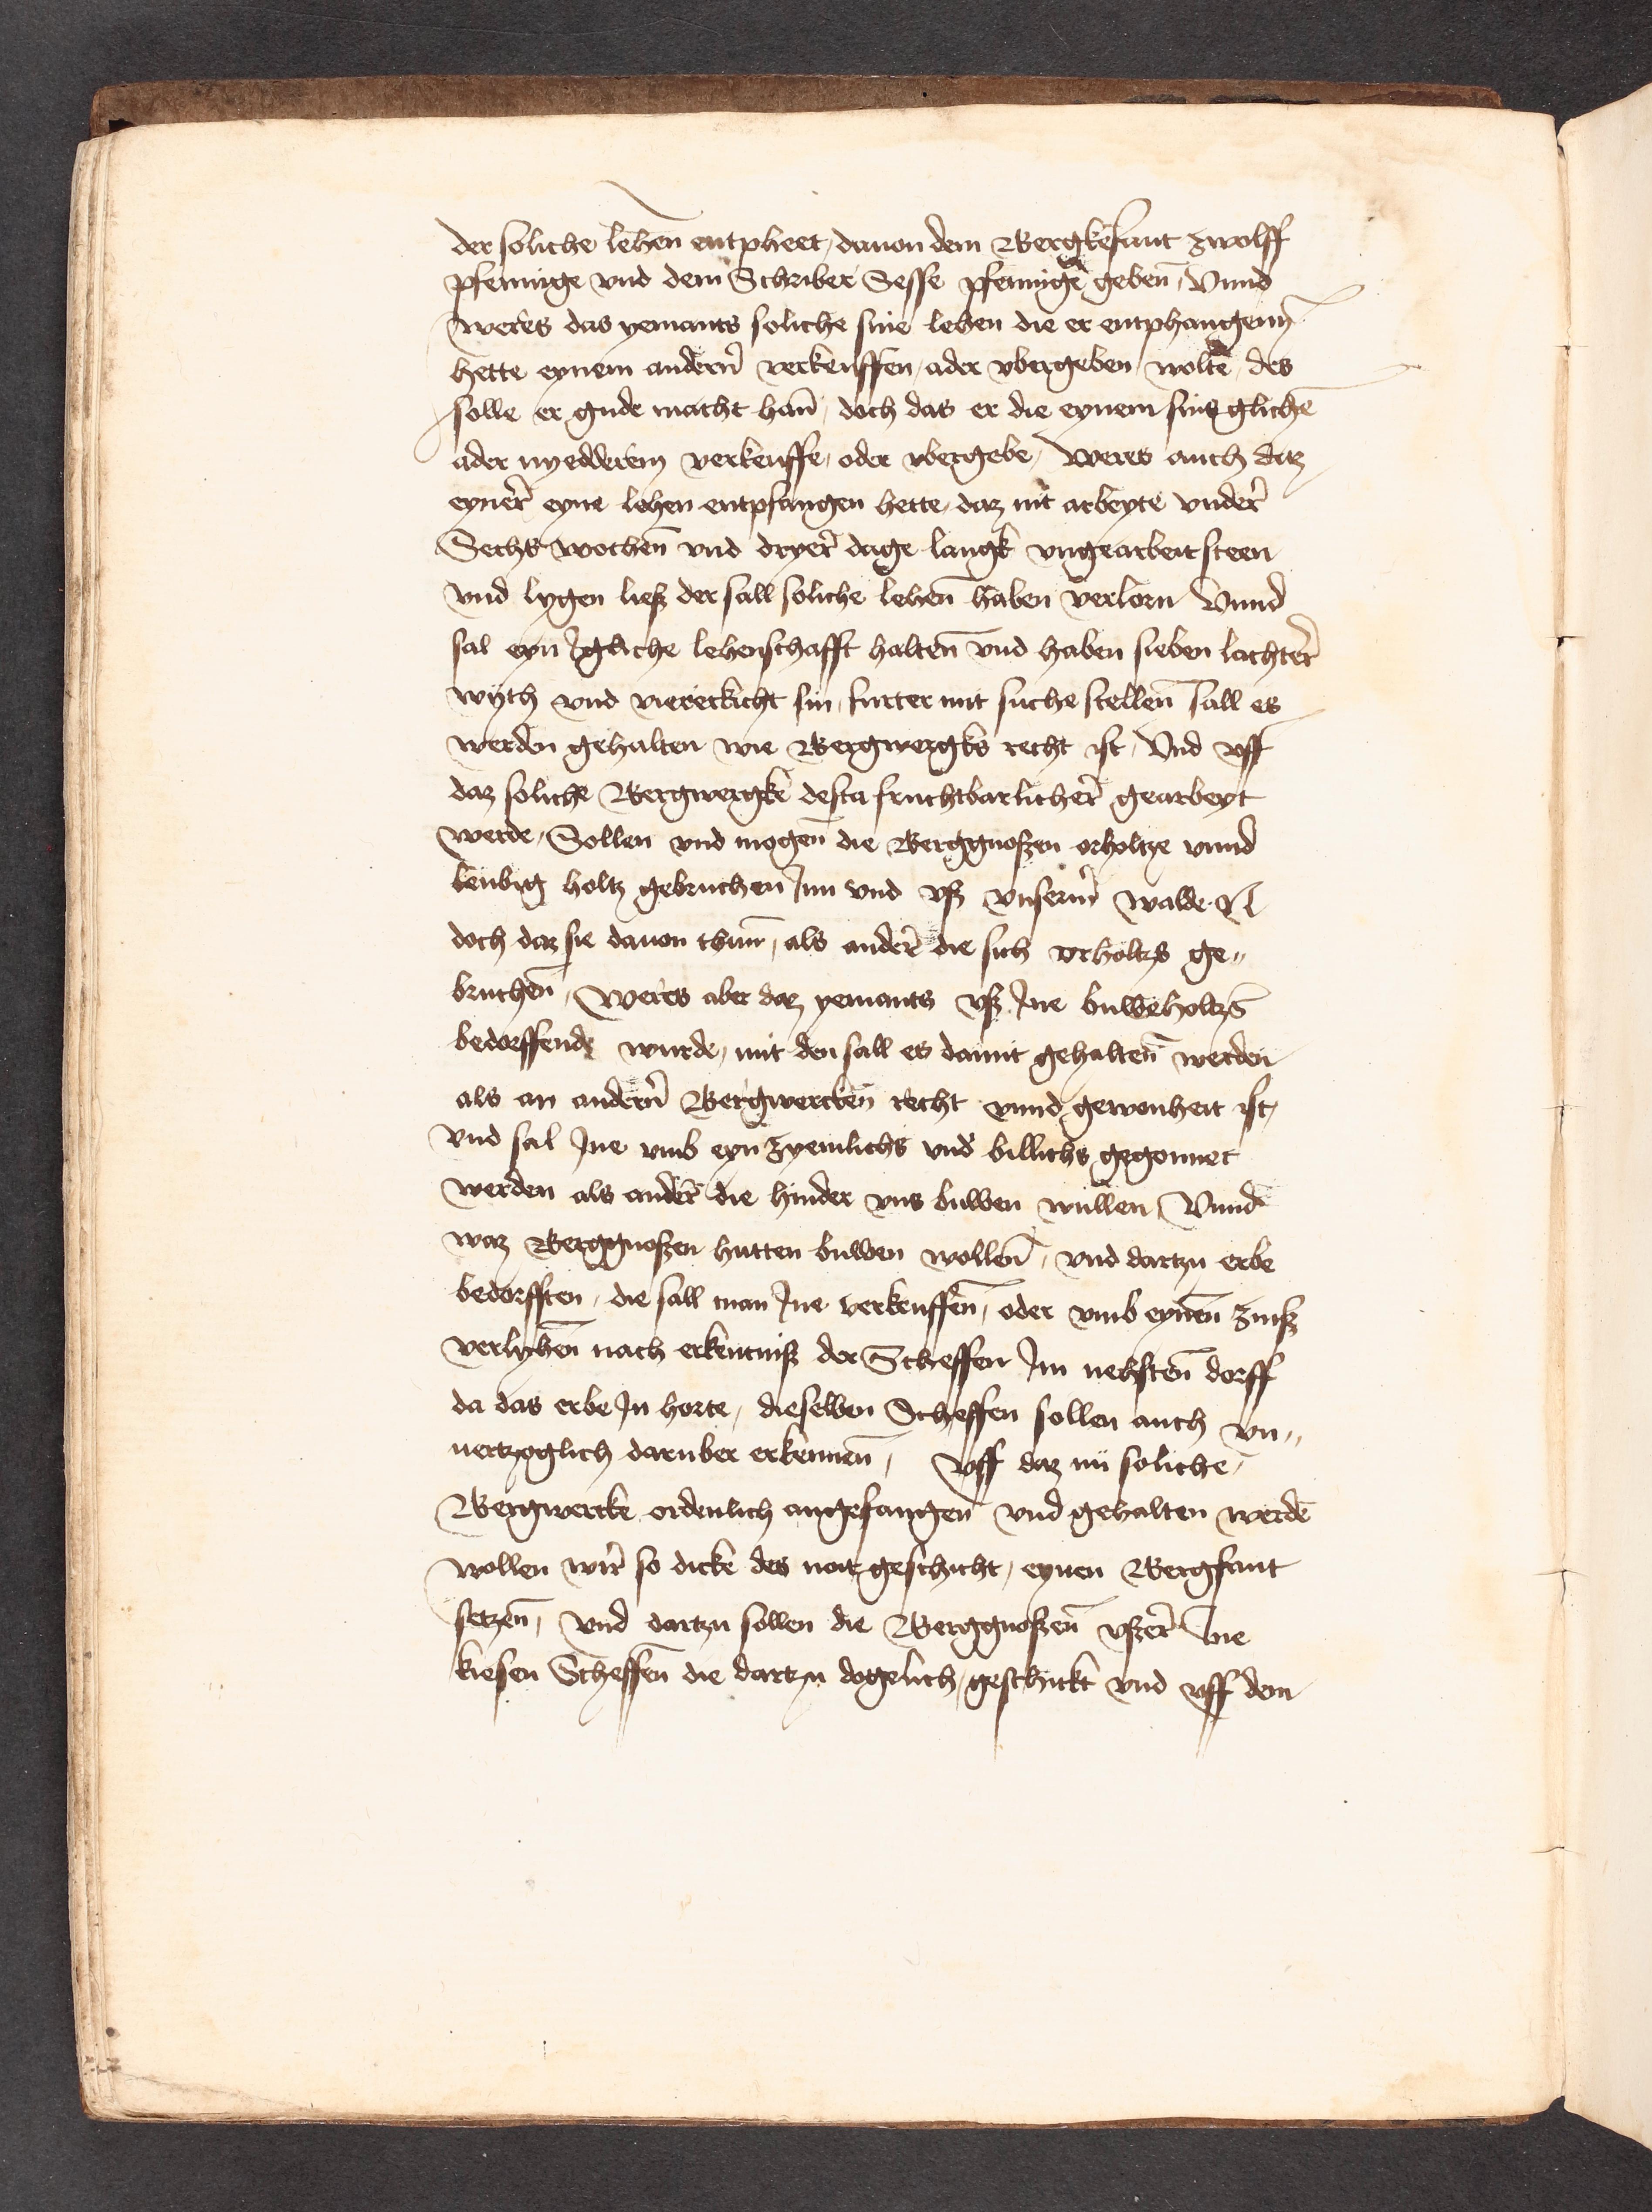 der soliche lehen̄ entpheet, dauon dem Bergkefaut zwolff
pfennige vnd dem Schriber Sesse pfennige geben̄, Vnnd
weres das yemants soliche sine lehen die er entphangenn̄
hette eynem andern̄ verkeuffen, ader vbergeben, wolte, des
solle er gude macht han̄, doch das er die eynem sins gliche̅
ader nyedderem verkeuffe, oder vbergebe, Weres auch daz
eyner̄ eyne lehen entpfangen hette, daz nit arbeyte vnder̄
Sechs wochen̄ vnd dryer̄ dage langk vngearbeit steen
vnd lygen ließ der sall soliche lehen̄ haben verlorn Vnnd
sal eyn Igliche lehenschafft halten̄ vnd haben sieben lachter̄
wyth vnd viereckicht sin, furter mit suche stellen̄ sall es
werden gehalten wie Bergwergks recht ist, Vnd vff
daz soliche Bergwergke desta fruchtbarlicher̄ gearbeyt
werde, Sollen vnd mogen̄ die Berggnoßen orholtze vnnd
leubig holtz gebruchen Inn vnd vß vnserm̄ walde
doch daz sie dauon thun̄, als ander̄ die sich vrholtzs ge„
bruchen̄, Weres aber daz yemants vß Ine buweholtzs̄
bedorffende wurde, mit den sall es damit gehalten̄ werden
als an andern̄ Bergwercken̄ recht vnnd gewonheit ist,
vnd sal Ine vmb eyn zyemlichs vnd billichs gegonnet
werden als ander̄ die hinder vns buwen wullen, Vnnd
waz Berggnoßen hutten buwen wollen̄, vnd dartzu erbe
bedorfften, die sall man Ine verkeuffen̄, oder vmb eynen̄ zinß
verlyhen̄ nach erkentniß der Scheffen Im nehsten̄ dorff
da das erbe In horte, dieselben Scheffen sollen auch vn„
uertzoglich daruber erkennen̄, Vff daz nü soliche,
Bergwercke ordenlich angefangen̄ vnd gehalten werde̅
wollen wir̄ so dicke des noit geschicht, eynen Bergfaut
setzen̄, vnd dartzu sollen die Berggnoßen̄ vßer̄ Ine
kiesen Scheffen̄ die dartzu dogelich, geschickt vnd vff dem